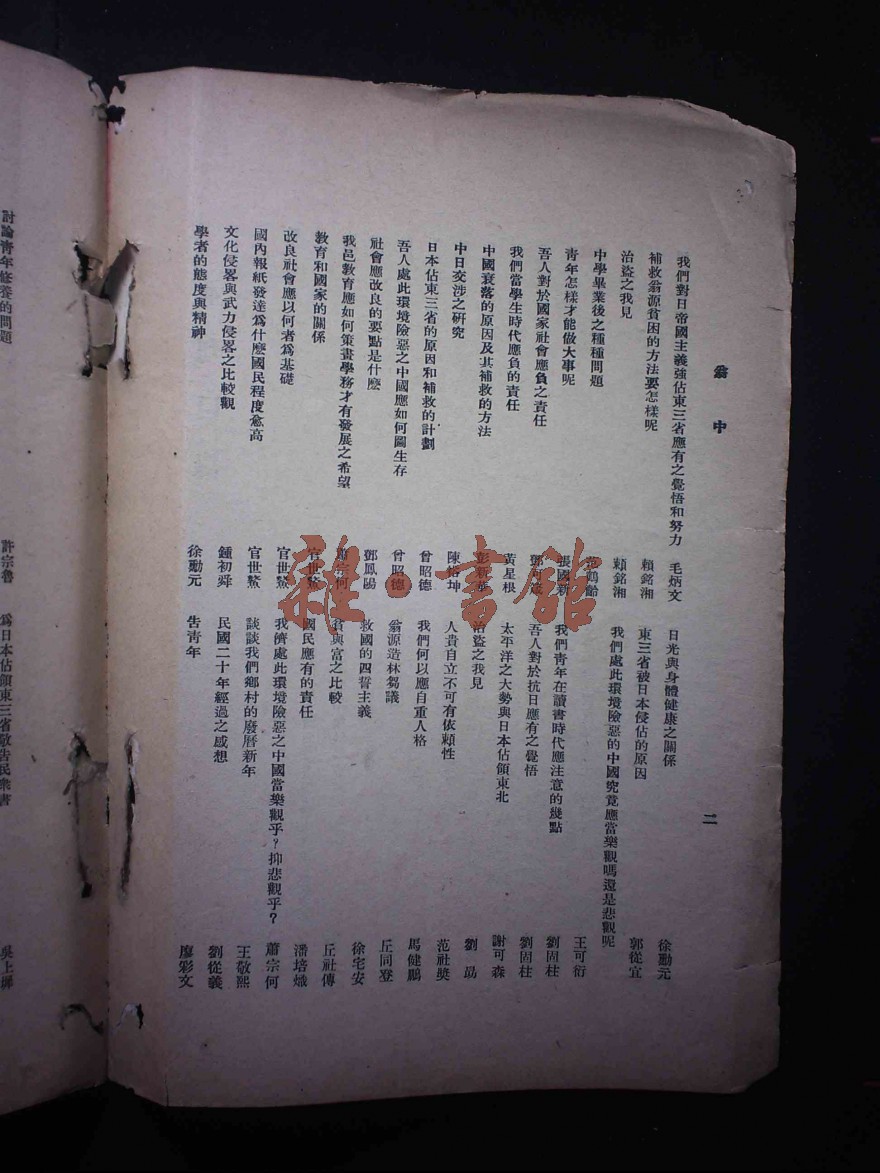 翁中 二
我們對日帝國主義強佔東三省應有之覺悟和努力 毛炳文
補救翁源貧困的方法要怎樣呢 賴銘湘
治盜之我見 賴銘湘
中學畢業後之種種問題 范鶴齡
青年怎樣才能做大事呢 張國新
吾人對於國家社會應負之責任 鄧可箴
我們當學生時代應負的責任 黃星根
中國衰落的原因及其補救的方法 彭新華
中日交涉之研究 陳榕坤
日本佔東三省的原因和補救的計劃 曾昭德
吾人處此環境險惡之中國應如何圖生存 曾昭德
社會應改良的要點是什麽 鄧鳳陽
我邑教育應如何策畫學務才有發展之希望 蕭宗何
教育和國家的關係 官世鰲
改良社會應以何者爲基礎 官世鰲
國內報紙發達爲什麽國民程度愈高 官世鰲
文化侵畧與武力侵畧之比較觀 鍾初舜
學者的態度與精神 徐勳元
日光與身體健康之關係 徐勳元
東三省被日本侵佔的原因 郭從宜
我們處此環境險惡的中國究竟應當樂觀嗎還是悲觀呢 王可衍
我們青年在讀書時代應注意的幾點 劉固柱
吾人對於抗日應有之覺悟 劉固柱
太平洋之大勢與日本佔領東北 謝可森
治盜之我見 劉勗
人貴自立不可有依賴性 范社奬
我們何以應自重人格 馬健鵬
翁源造林芻議 丘同登
救國的四誓主義 徐宅安
貧與富之比較 丘社傳
國民應有的責任 潘培熾
我儕處此環境險惡之中國當樂觀乎？抑悲觀乎？ 蕭宗何
談談我們鄉村的廢曆新年 王敬熙
民國二十年經過之感想 劉從義
告青年 廖彩文
討論青年修養的問題 許宗魯
爲日本佔領東三省敬告民衆書 吳上
雜·書館